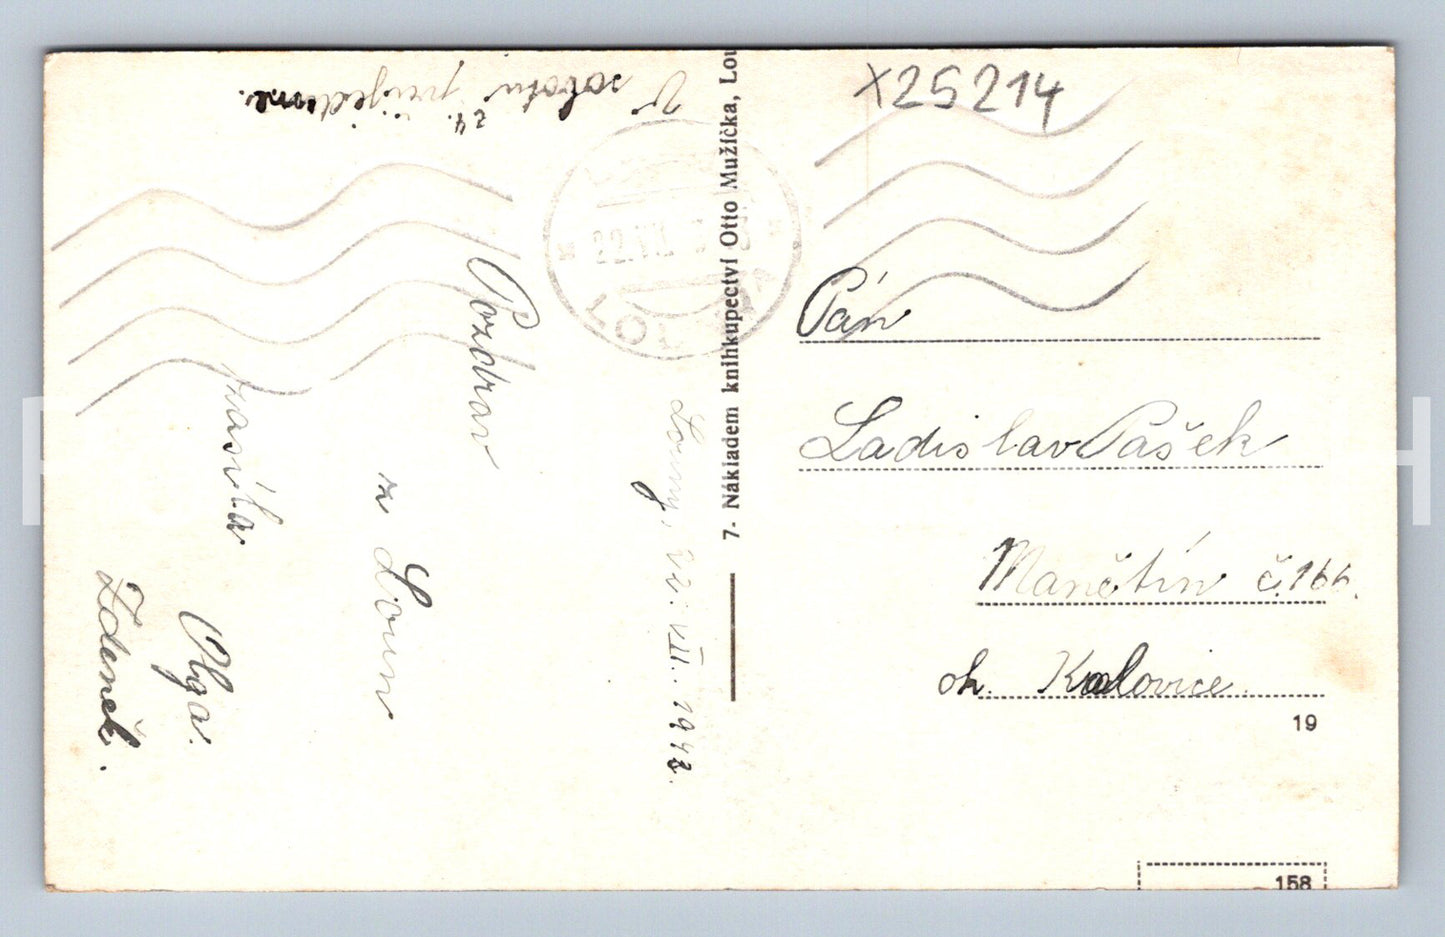 X25214
V sobotu 24. přijedeme.
Louny, 22. VII. 1943.
Pozdrav
z Loun
zasílá
Olga.
Zdeněk.
7- Nákladem knihkupectví Otto Mužíčka, Lou
22.VII.
Pán
Ladislav Pašek
Manětín č. 166.
ok. Kralovice.
19
158